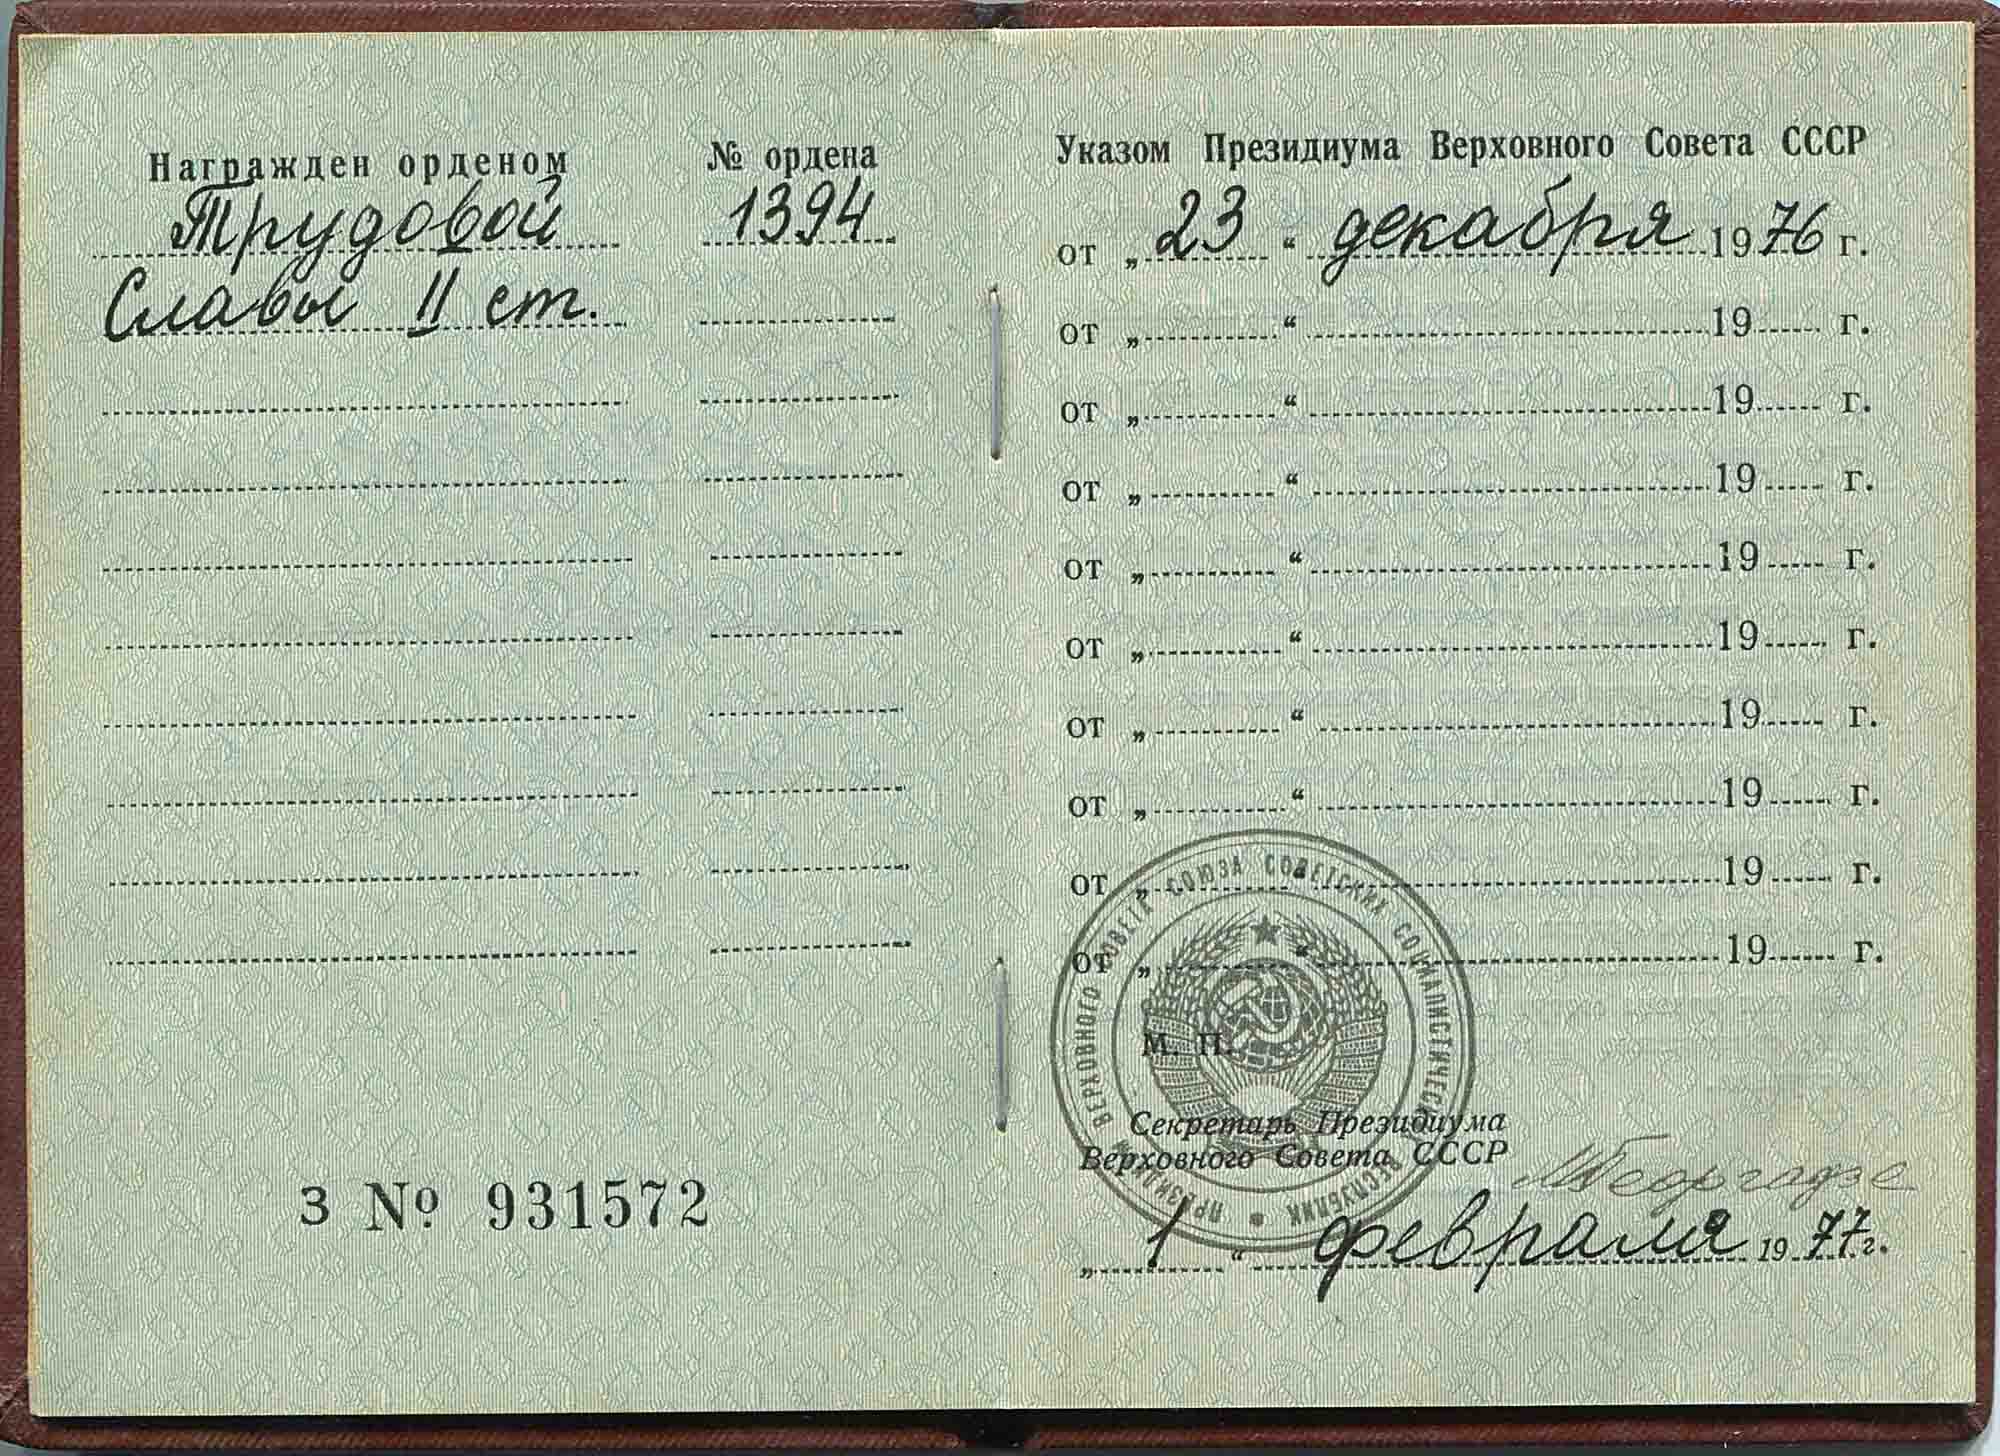 Награжден орденом
№ ордена
Трудовой
1394
Славы II ст.
З № 931572
Указом Президиума Верховного Совета СССР
от „ 23 “ декабря 1976 г.
от „ “ 19 г.
от „ “ 19 г.
от „ “ 19 г.
от „ “ 19 г.
от „ “ 19 г.
от „ “ 19 г.
от „ “ 19 г.
от „ “ 19 г.
от „ “ 19 г.
ПРЕЗИДИУМ ВЕРХОВНОГО СОВЕТА СОЮЗА СОВЕТСКИХ СОЦИАЛИСТИЧЕСКИХ РЕСПУБЛИК
М. П.
Секретарь Президиума
Верховного Совета СССР
МГеоргадзе
„ 1 “ февраля 1977 г.